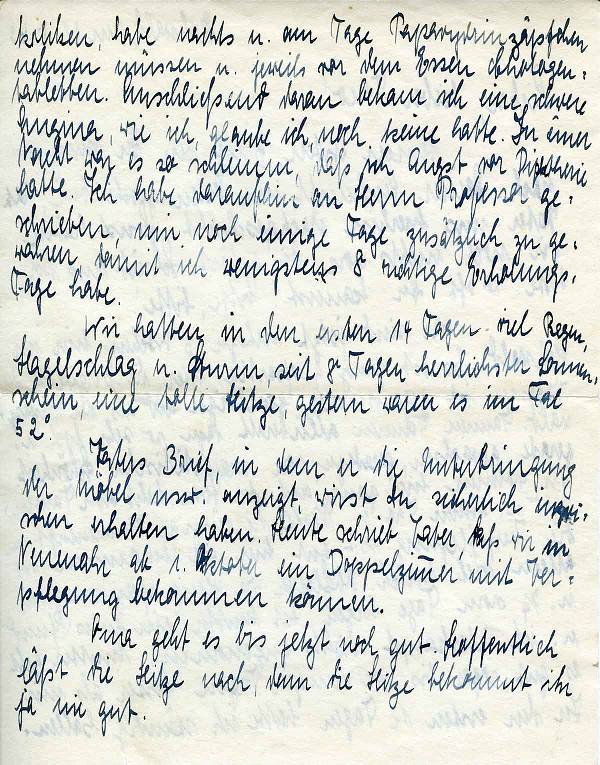 koliken, habe nachts u. am Tage Papaverinzäpfchen
nehmen müssen u. jeweils vor dem Essen Cholagen-
tabletten. Anschließend daran bekam ich eine schwere
Angina, wie ich, glaube ich, noch keine hatte. In einer
Nacht war es so schlimm, daß ich Angst vor Diphterie
hatte. Ich habe daraufhin an Herrn Professor ge-
schrieben, mir noch einige Tage zusätzlich zu ge-
währen, damit ich wenigstens 8 richtige Erholungs-
Tage habe.
Wir hatten in den ersten 14 Tagen viel Regen,
Hagelschlag u. Sturm, seit 8 Tagen herrlichster Sonnen-
schein, eine tolle Hitze, gestern waren es im Tal
52°.
Vaters Brief, in dem er die Unterbringung
der Möbel usw. anzeigt, wirst Du sicherlich inzwi-
schen erhalten haben. Heute schrieb Vater, daß wir in
Neuenahr ab 1. Oktober ein Doppelzimmer mit Ver-
pflegung bekommen können.
Oma geht es bis jetzt noch gut. Hoffentlich
läßt die Hitze nach, denn die Hitze bekommt ihr
ja nie gut.